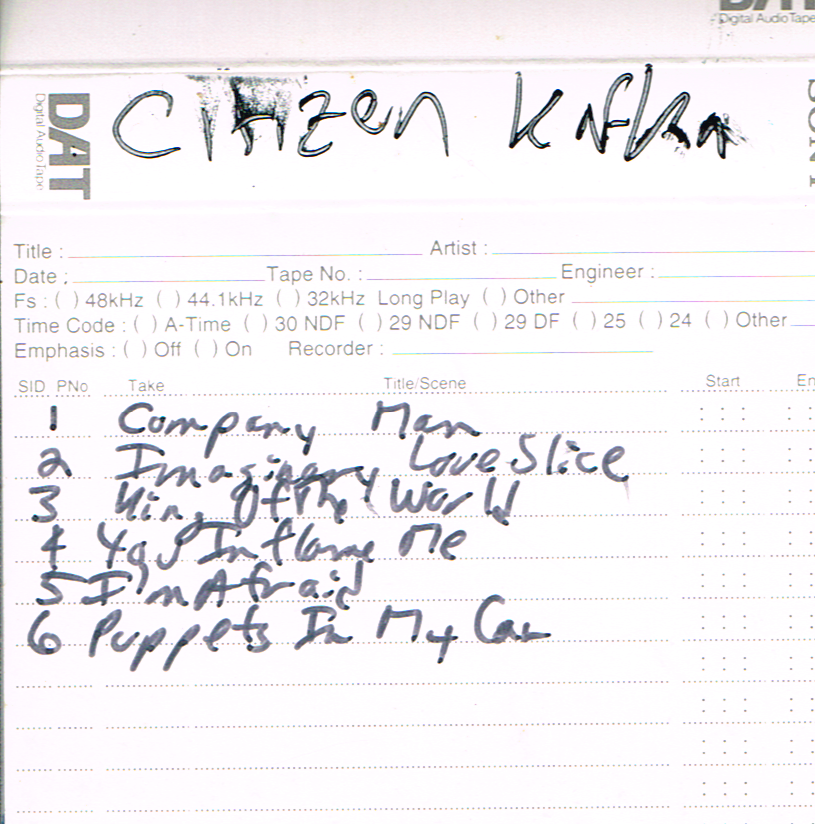 DAT
Digital Audio Tape
DAT
Digital Audio Tape
Citizen Kafka
SONY
Title : Artist :
Date : Tape No. : Engineer :
Fs : ( ) 48kHz ( ) 44.1kHz ( ) 32kHz Long Play ( ) Other
Time Code : ( ) A-Time ( ) 30 NDF ( ) 29 NDF ( ) 29 DF ( ) 25 ( ) 24 ( ) Other
Emphasis : ( ) Off ( ) On Recorder :
SID PNo Take Title/Scene Start En
1 Company Man : : :
2 Imaginary Love Slice : : :
3 King Of The World : : :
4 You Inflame Me : : :
5 I'm Afraid : : :
6 Puppets In My Car : : :
: : :
: : :
: : :
: : :